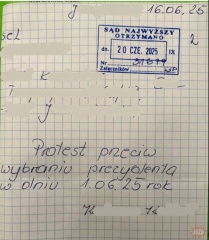 16.06.25
SĄD NAJWYŻSZY
OTRZYMANO
dn. 20 CZE. 2025 IX
Nr
Załączników
2
K
y
Protest przeciw
wybraniu prezydenta
w dniu 1.06.25 rok
K K